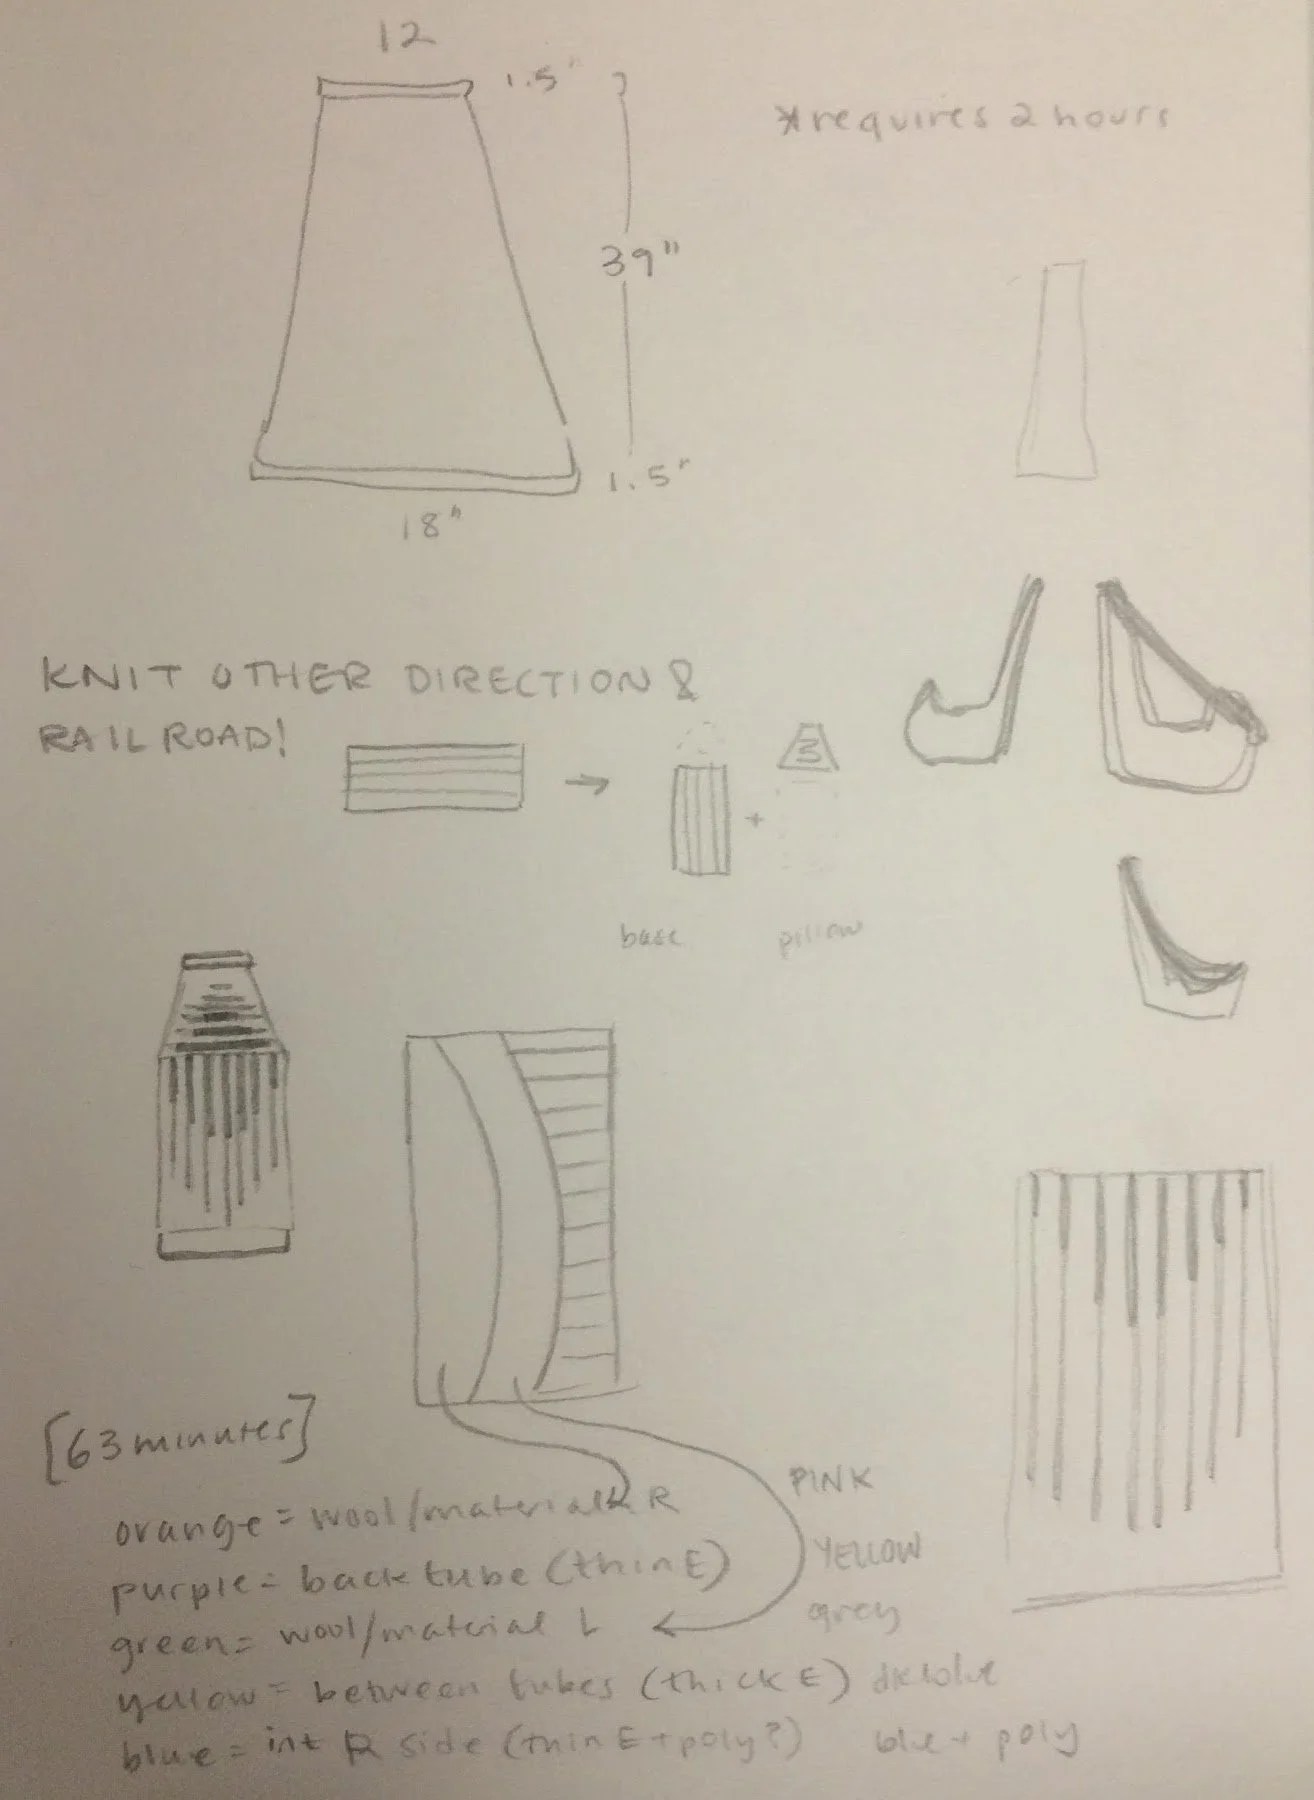 12
1.5"
*requires 2 hours
39"
1.5"
18"
KNIT OTHER DIRECTION &
RAILROAD!
3
+
base
pillow
[63 minutes]
PINK
orange = wool/material R
YELLOW
purple = back tube (thin E)
grey
green = wool/material L
yellow = between tubes (thick E) dk blue
blue = int R side (thin E + poly?) blue + poly